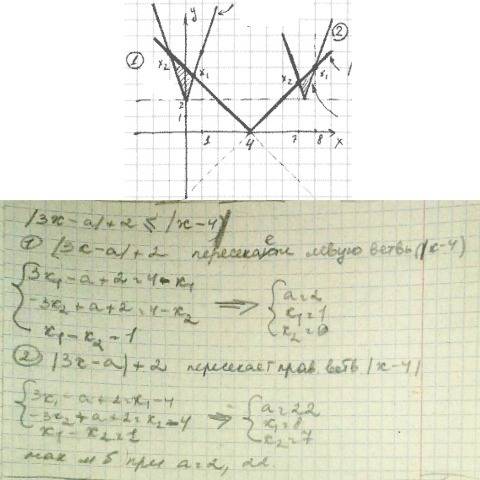 ① y ②
x₂ x₁ x₂ x₁
2
1
1 4 7 8 x
|3x-a|+2 ≤ |x-4|
① |3x-a|+2 пересекает левую ветвь |x-4|
3x₁-a+2=4-x₁
-3x₂+a+2=4-x₂ ⇒ a=2
x₁-x₂=1 x₁=1
x₂=0
② |3x-a|+2 пересекает прав. ветвь |x-4|
3x₁-a+2=x₁-4 a=22
-3x₂+a+2=x₂-4 ⇒ x₁=8
x₁-x₂=1 x₂=7
при a=2, 22.